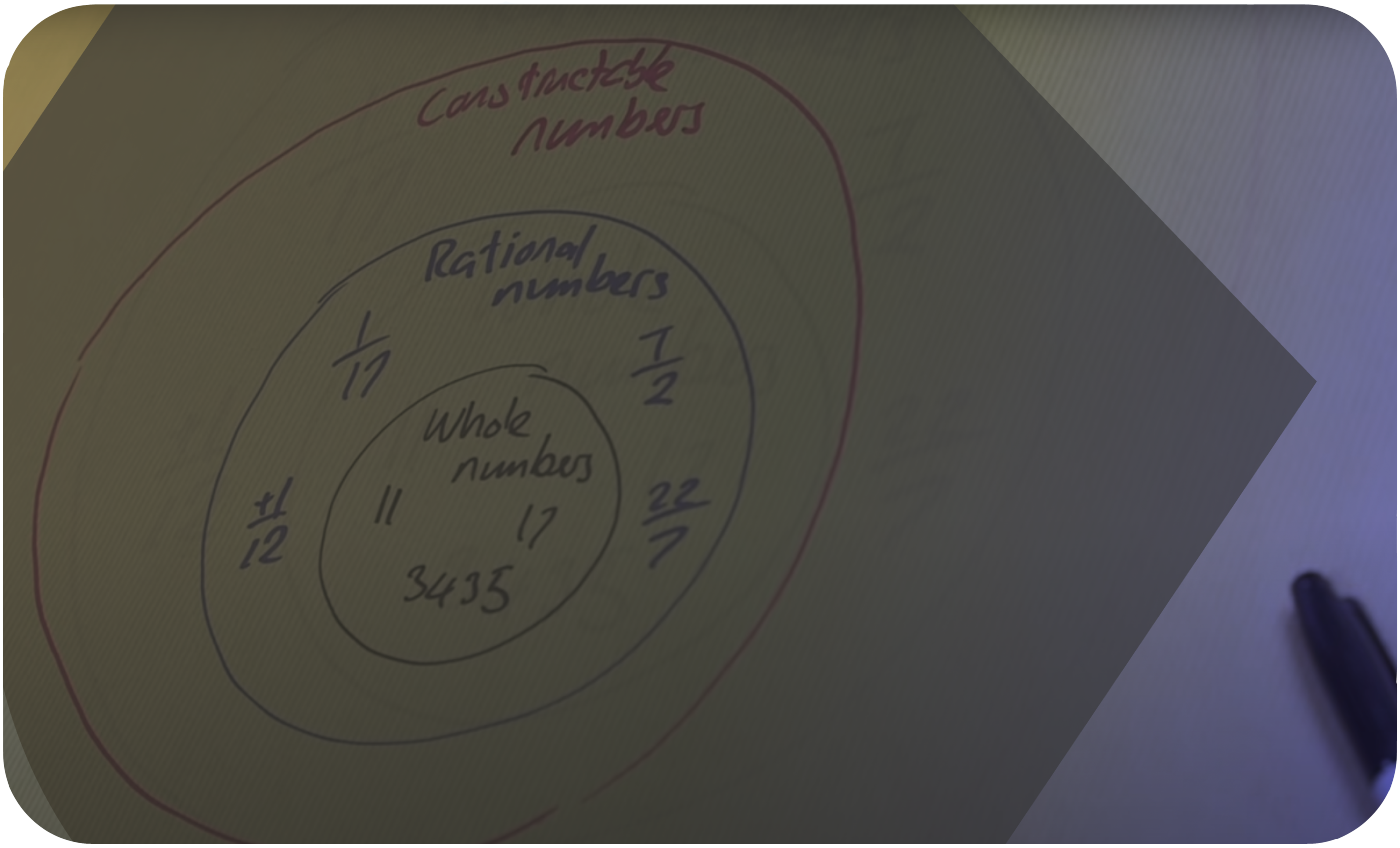 Constructable
numbers
Rational
numbers
1/17
7/2
Whole
numbers
11
17
3435
+1/12
22/7